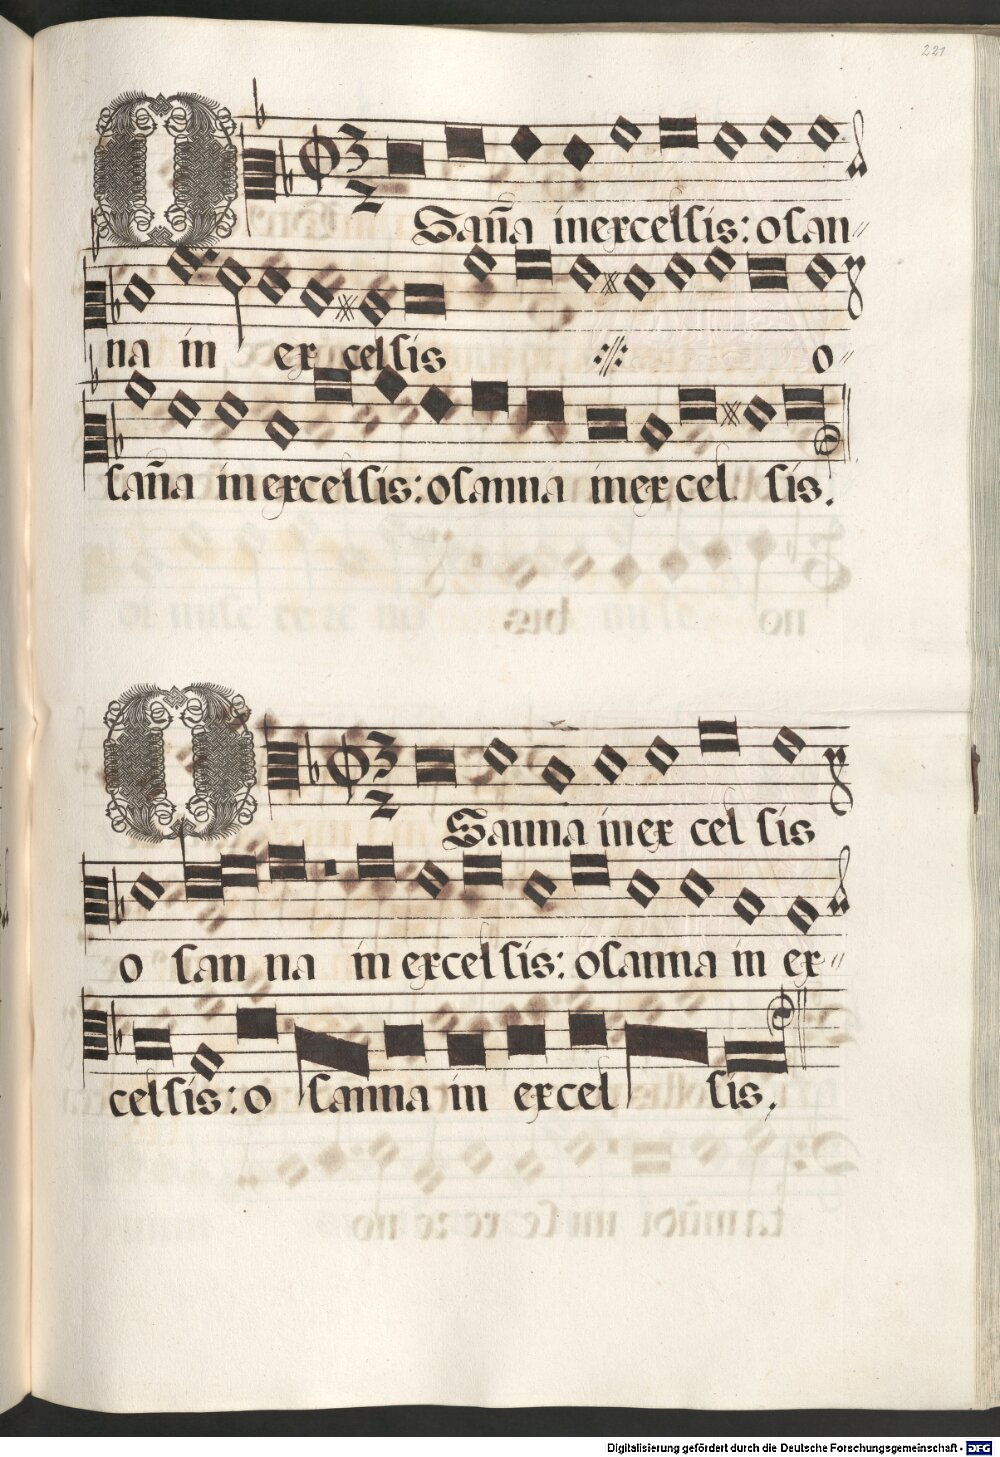 221
OSan̄a in excelsis: osan〃
na in excelsis ·//· o〃
san̄a in excelsis: osanna in excel sis.
OSanna in ex cel sis
o san na in excelsis: osanna in ex〃
celsis: o sanna in excel sis.
Digitalisierung gefördert durch die Deutsche Forschungsgemeinschaft - DFG